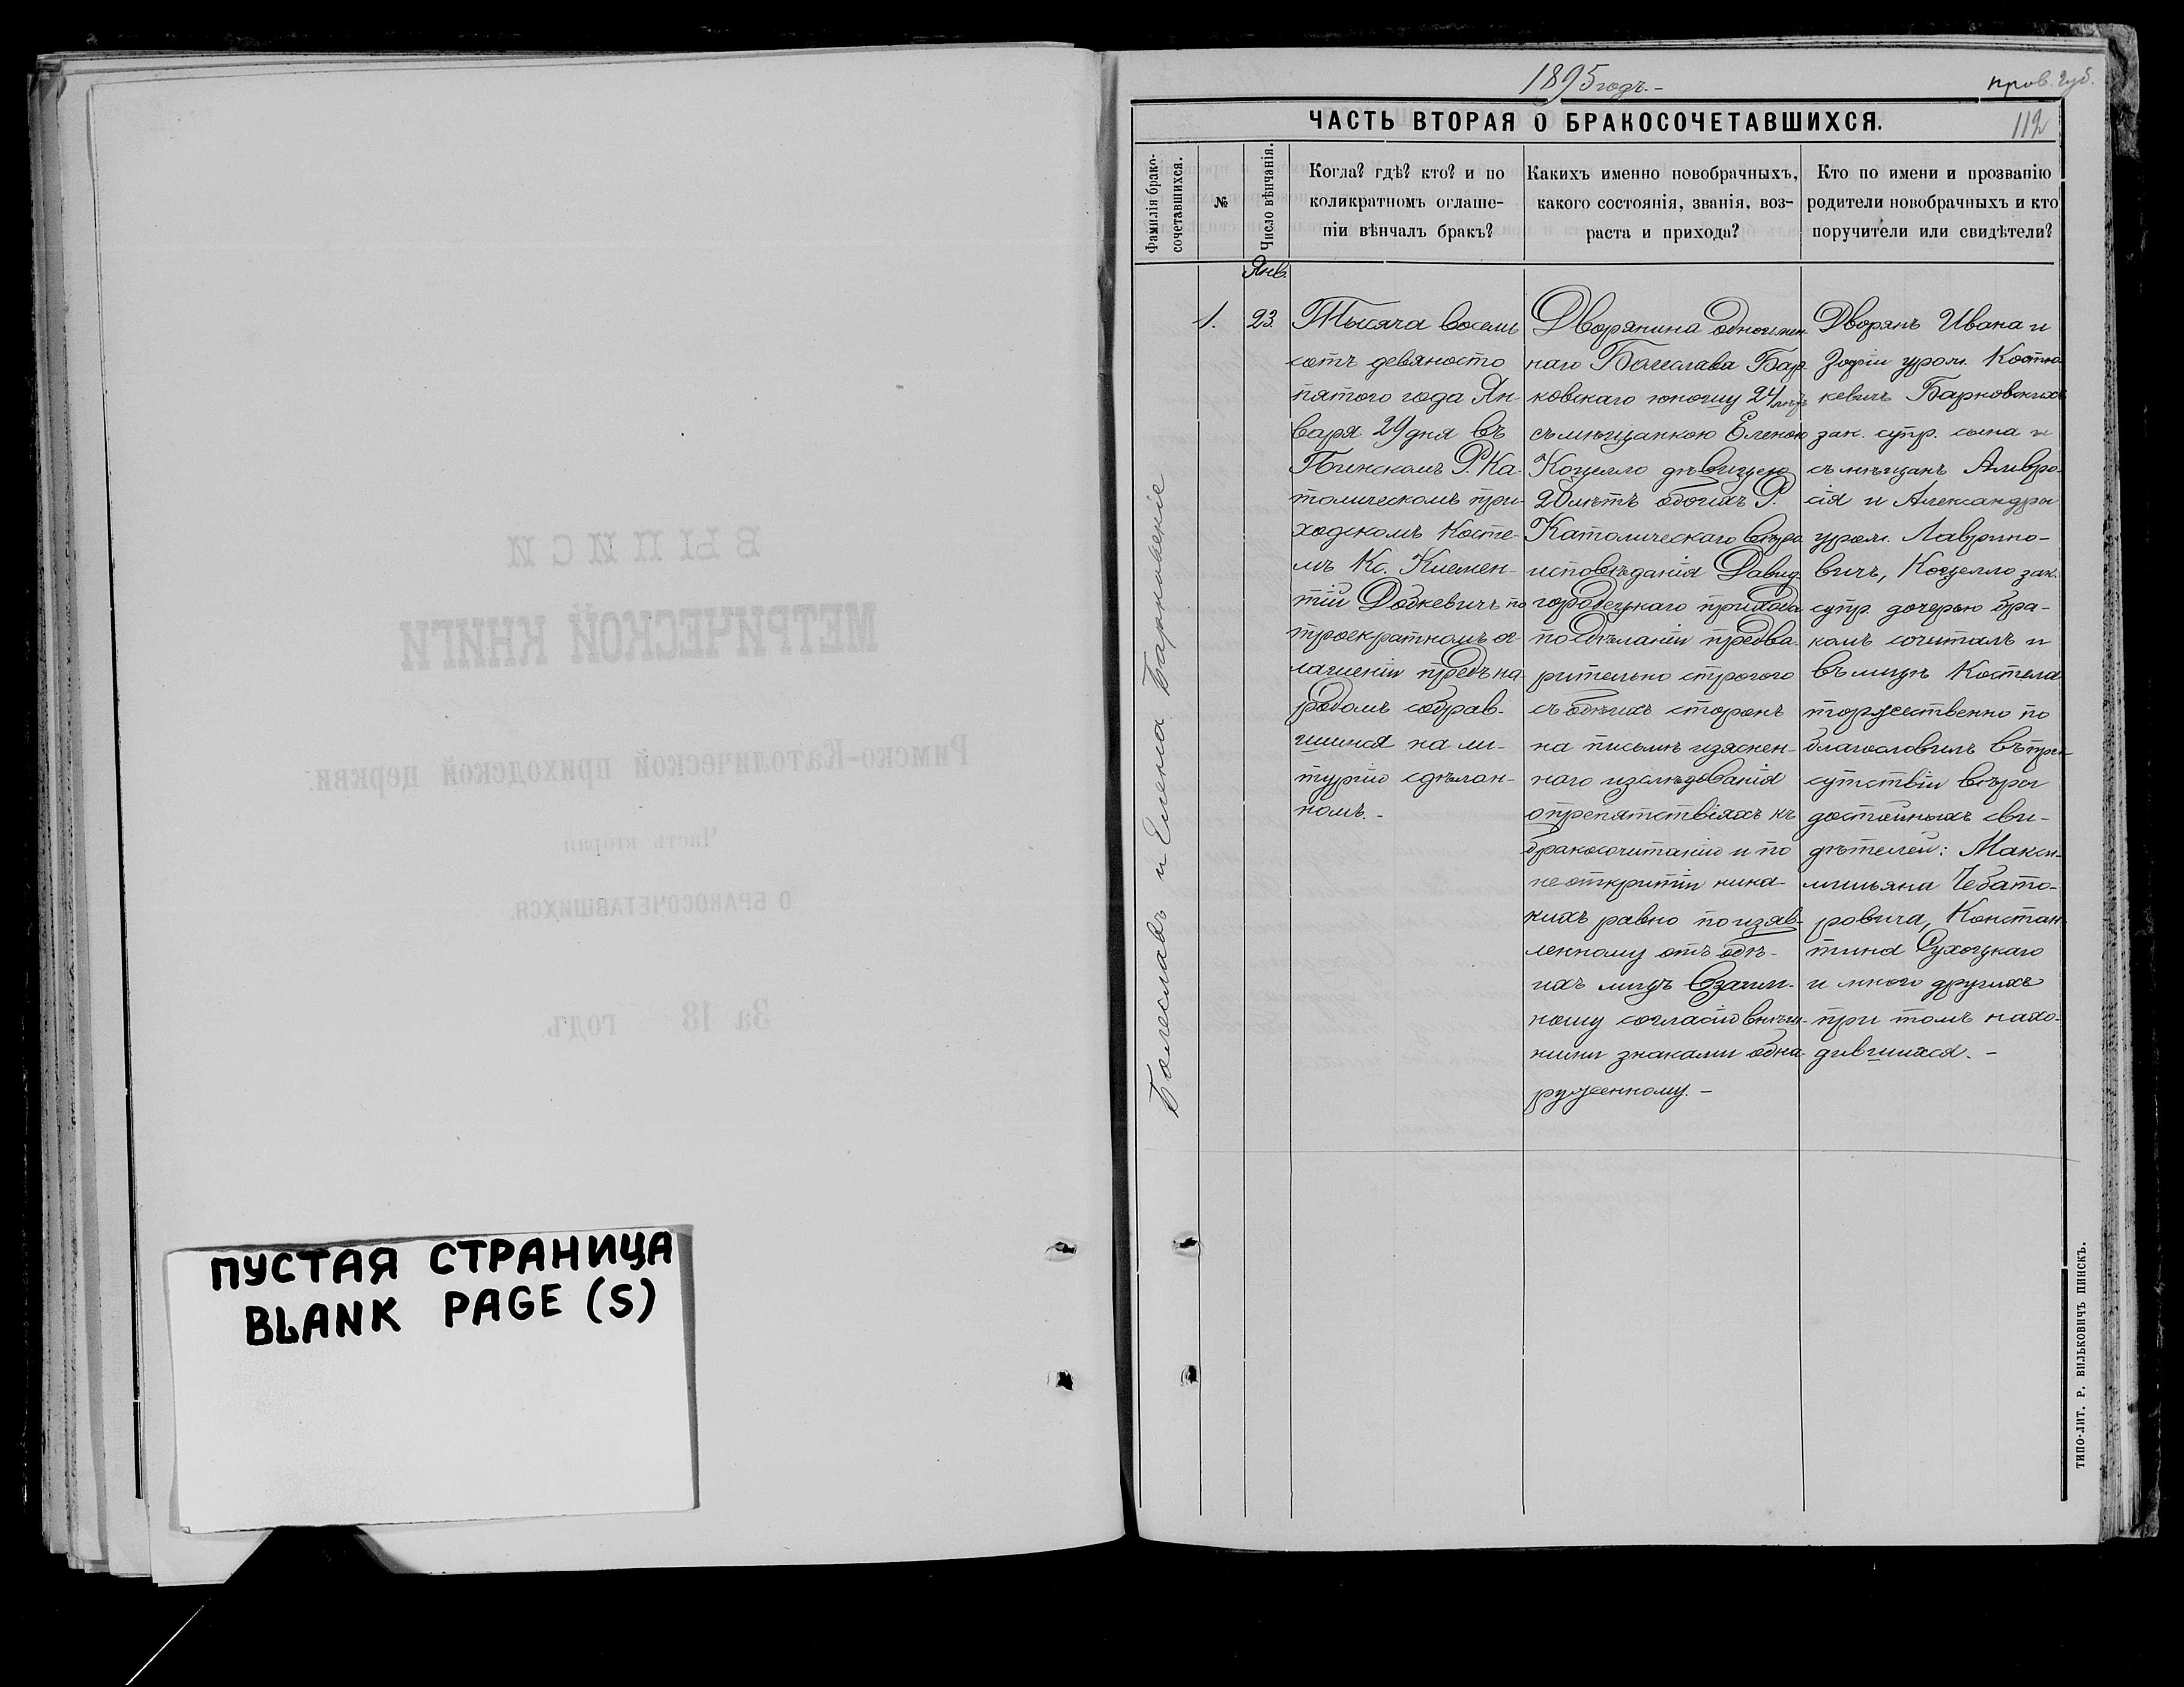 ПУСТАЯ СТРАНИЦА
BLANK PAGE (S)
1895 годъ.-
пров. Губ.
ЧАСТЬ ВТОРАЯ О БРАКОСОЧЕТАВШИХСЯ.
112
Фамилія брако-
сочетавшихся.
№
Число вѣнчанія.
Когда? гдѣ? кто? и по
коликратномъ оглаше-
ніи вѣнчалъ бракъ?
Какихъ именно новобрачныхъ,
какого состоянія, званія, воз-
раста и прихода?
Кто по имени и прозванію
родители новобрачныхъ и кто
поручители или свидѣтели?
Болеславъ и Елена Барковскіе
1.
Янв.
23.
Тысяча восемь
сотъ девяносто
пятого года Ян-
варя 29 дня въ
Пинскомъ Р. Ка-
толическомъ при-
ходскомъ Косте-
лѣ Кс. Климен-
тій Додкевичъ по
троекратномъ ог-
лашеніи предъ на-
родомъ собрав-
шимся на ли-
тургію сдѣлан-
номъ.-
Дворянина одноимен
наго Болеслава Бар-
ковскаго юношу 24 лѣтъ
съ мѣщанкою Еленою
Коцелло дѣвицею
20 лѣтъ обоихъ Р.
Католическаго вѣро
исповѣданія Давид-
городецкаго прихода
по сдѣланіи предва-
рительно строгого
съ обѣихъ сторонъ
на письмѣ изяснен-
наго изслѣдованія
о препятствіяхъ къ
бракосочитанію и по
не открытіи ника-
кихъ равно по изяв-
ленному отъ обѣ-
ихъ лицъ взаим-
ному согласію внѣш-
ними знаками обна-
руженному.-
Дворянъ Ивана и
Зофіи урож. Костю-
кевичъ Барковскихъ
зак. супр. сына и
съ мѣщанъ Амвро-
сія и Александры
урож. Лаврино-
вичъ, Коцелло зак.
супр. дочерью бра-
комъ сочиталъ и
въ лицѣ Костела
торжественно по
благословилъ въ при-
сутствіи вѣры
достойныхъ сви-
дѣтелей: Макси-
мильяна Чебато-
ровича, Констан-
тина Сухоцкаго
и много другихъ
при томъ нахо-
дившихся.-
ТИПО-ЛИТ. Р. ВИЛЬКОВИЧЪ ПИНСКЪ.